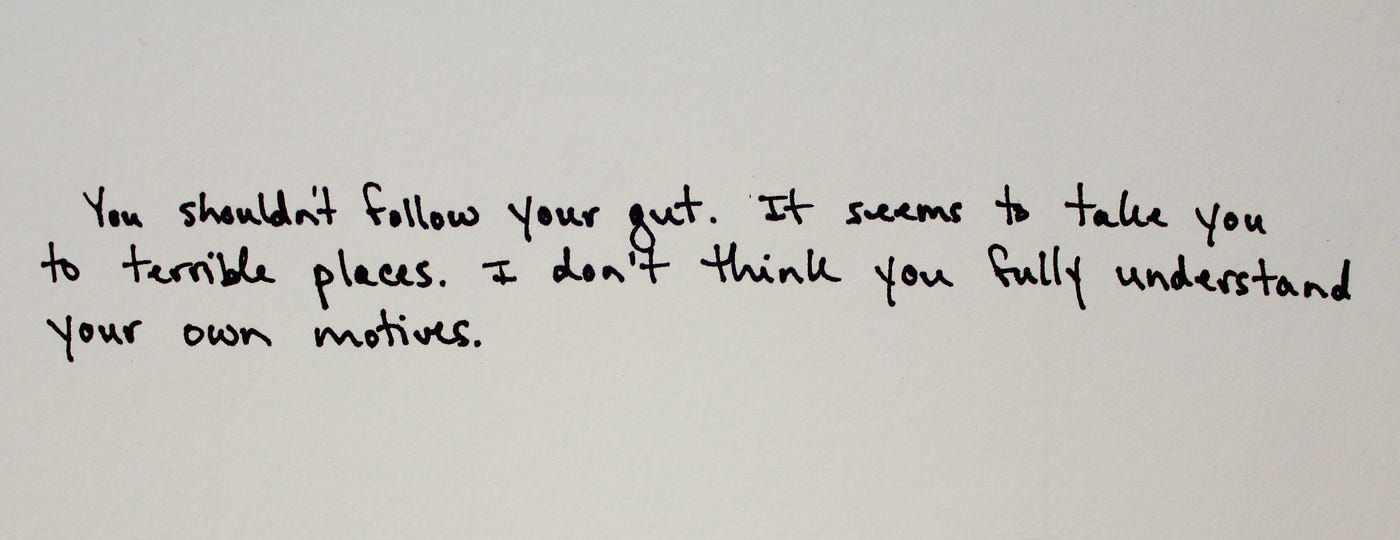 You shouldn't follow your gut. It seems to take you
to terrible places. I don't think you fully understand
your own motives.